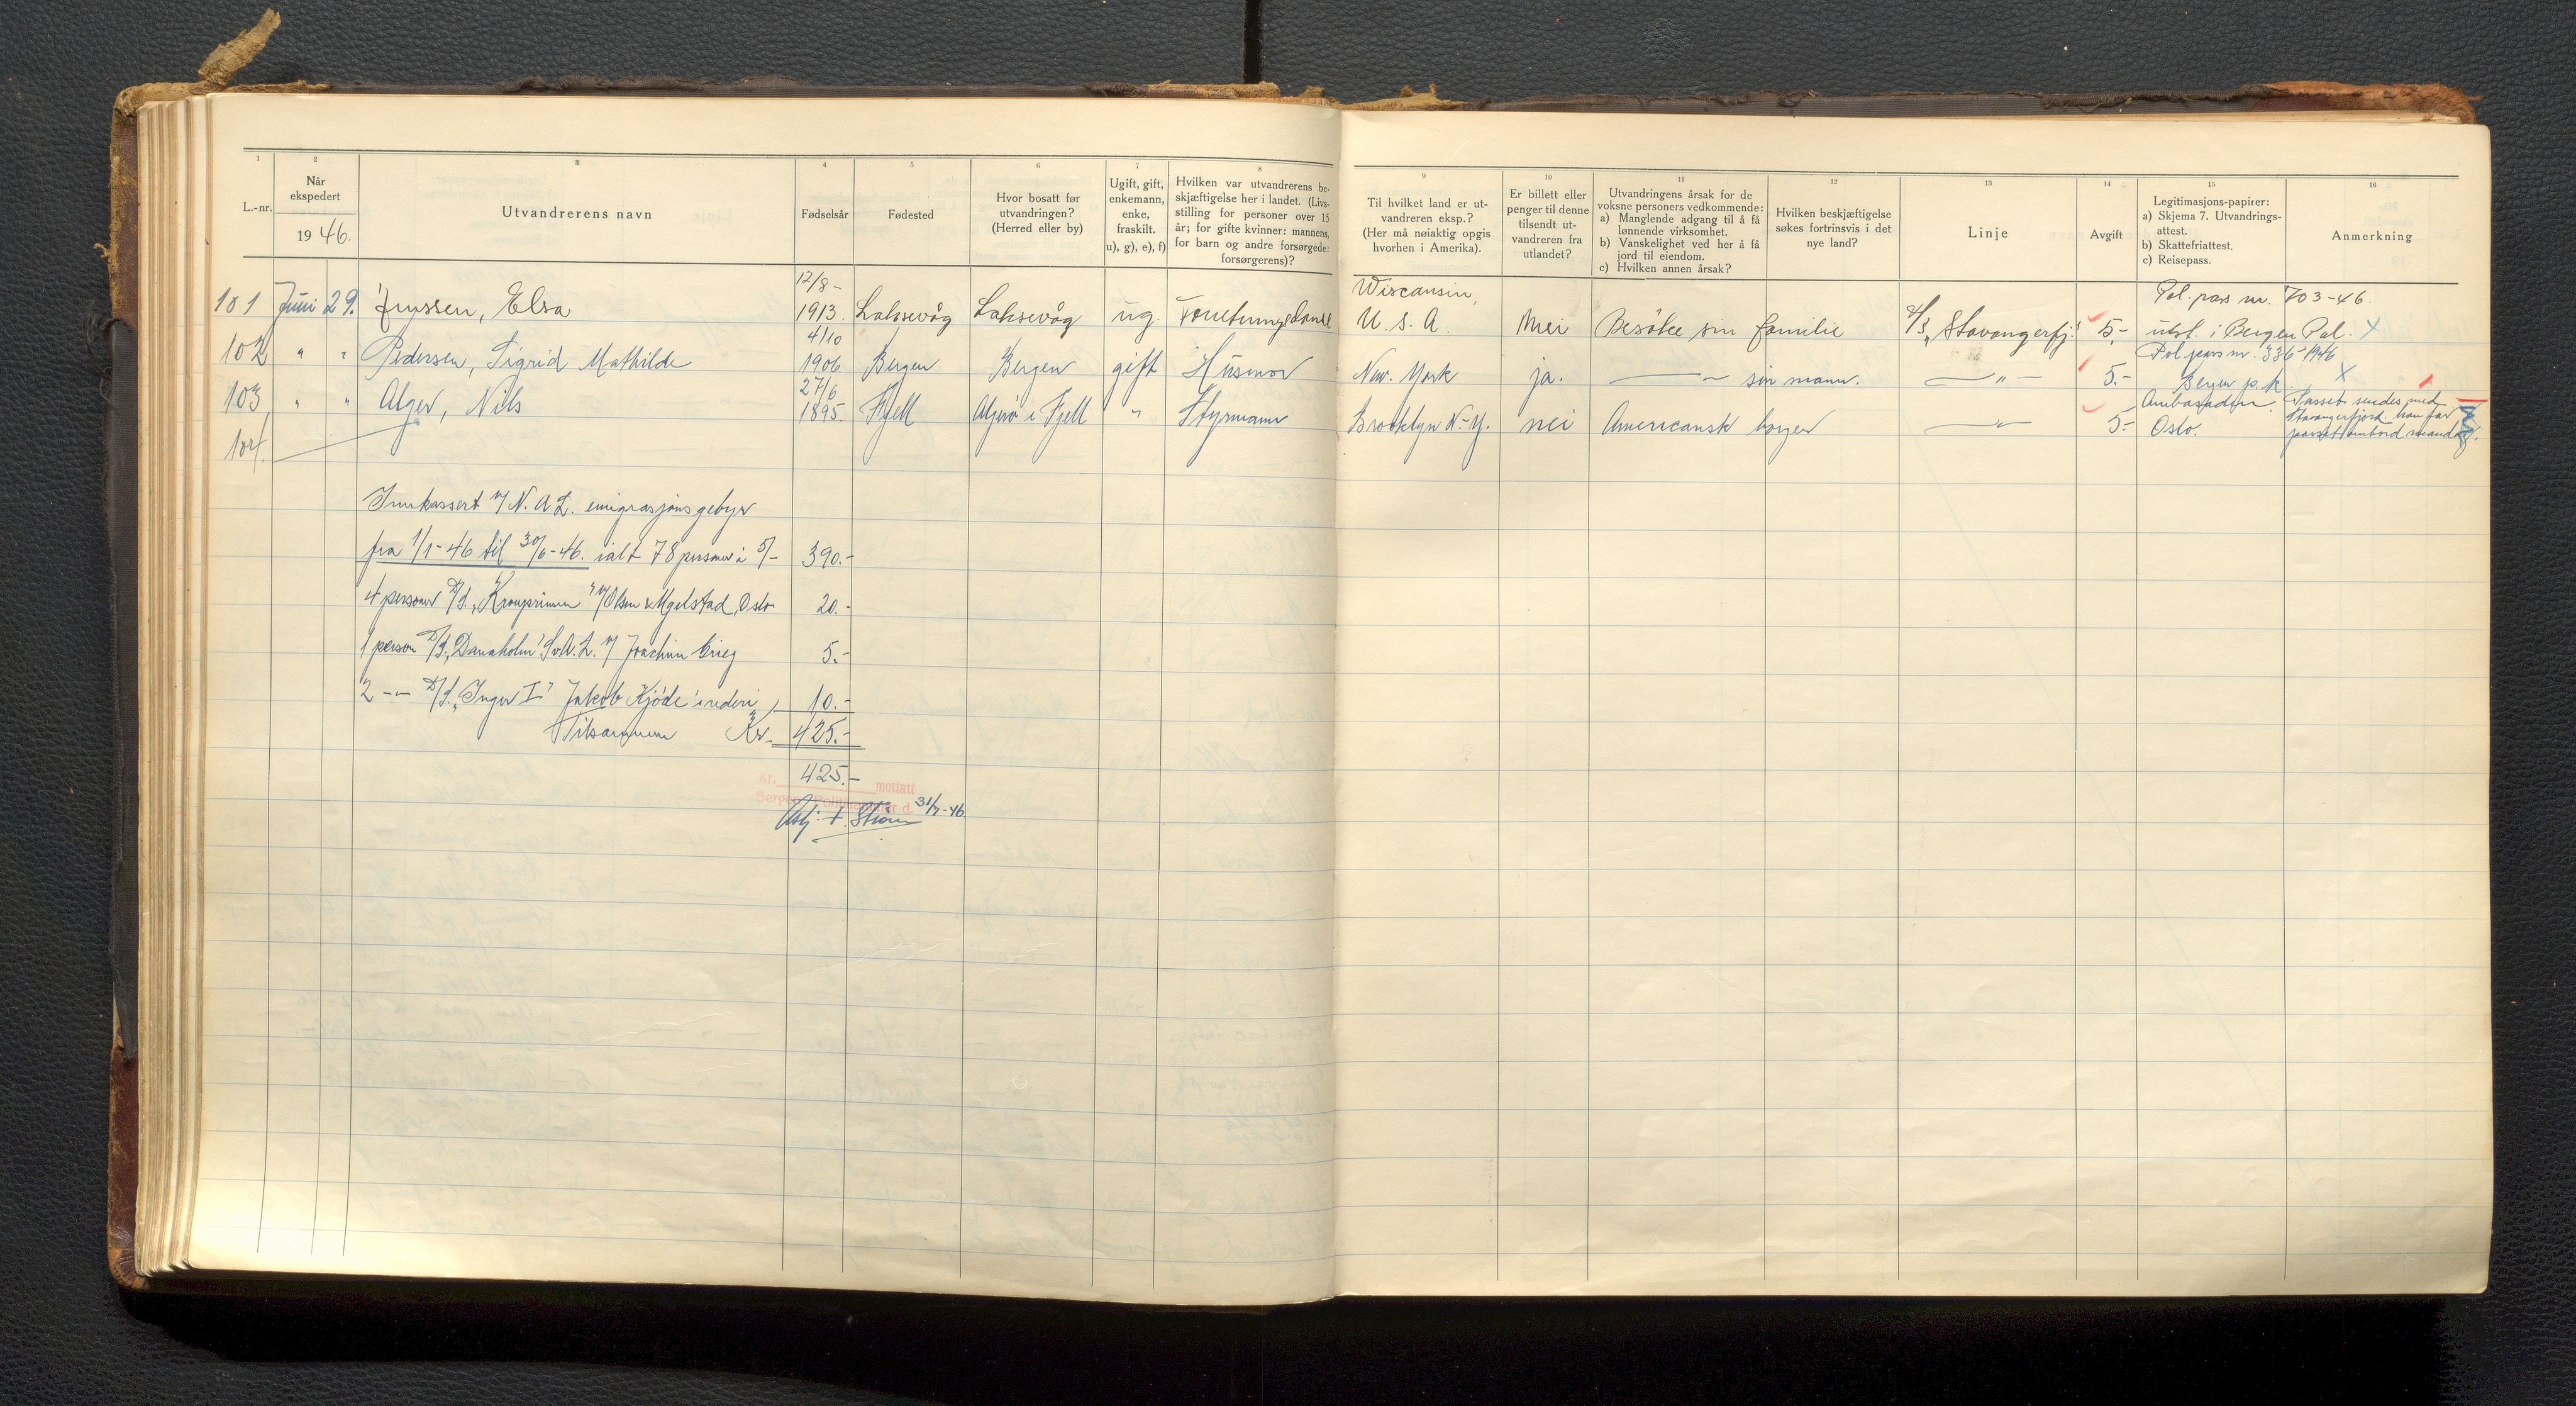 1 2 3 4 5 6 7 8
L.-nr. Når ekspedert 1946. Utvandrerens navn Fødselsår Fødested Hvor bosatt før utvandringen? (Herred eller by) Ugift, gift, enkemann, enke, fraskilt. u), g), e), f) Hvilken var utvandrerens beskjæftigelse her i landet. (Livsstilling for personer over 15 år; for gifte kvinner: mannens, for barn og andre forsørgede: forsørgerens)?
9 10 11 12 13 14 15 16
Til hvilket land er utvandreren eksp.? (Her må nøiaktig opgis hvorhen i Amerika). Er billett eller penger til denne tilsendt utvandreren fra utlandet? Utvandringens årsak for de voksne personers vedkommende: a) Manglende adgang til å få lønnende virksomhet. b) Vanskelighet ved her å få jord til eiendom. c) Hvilken annen årsak? Hvilken beskjæftigelse søkes fortrinsvis i det nye land? Linje Avgift Legitimasjons-papirer: a) Skjema 7. Utvandringsattest. b) Skattefriattest. c) Reisepass. Anmerkning
101 Juni 29. Elsa 12/8- 1913. Laksevåg Laksevåg ug. Wiscansin, U. S. A. Nei Besöke sin familie D/S „Stavangerfj." 5,- Pol. pass nr. 703-46. utst. i Bergen Pol. X
102 " " Pedersen, Sigrid Mathilde 4/10 1906 Bergen Bergen gift Husmor New. York ja. — " — sin mann. — " — 5.- Pol pass nr. 336-1946 Bergen p.k. X
103 " " Alger, Nils 27/6 1895. Fjell Algerö i Fjell " Styrmann Brooklyn N.-Y. nei Americansk borger — " — 5.- Ambasaden Oslo. Passet sendes med Stavangerfjord. han får passet ombord mandag.
104.
Innkassert v/ N. A. L. emigrasjonsgebyr
fra 1/1-46 til 30/6-46. ialt 78 personer à 5/- 390.-
4 personer D/S. „Kronprinsen" v/ Olsen & Oslo 20.-
1 person D/S. „Danaholm" Sv. A. L. v/ Joachim Grieg 5.-
2 -"- D/S. „Inger I" Jakob Kjöde's rederi 10.-
Tilsammen Kr. 425.-
425.-
Kr. mottatt
Bergen Politikammer d. 31/7-46
Ström